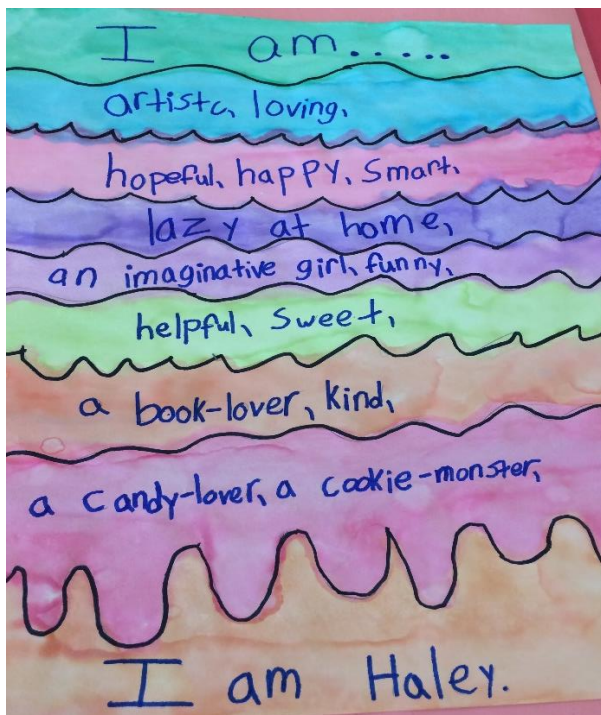 I am.....
artistc, loving,
hopeful, happy, smart,
lazy at home,
an imaginative girl, funny,
helpful, sweet,
a book-lover, kind,
a candy-lover, a cookie-monster,
I am Haley.